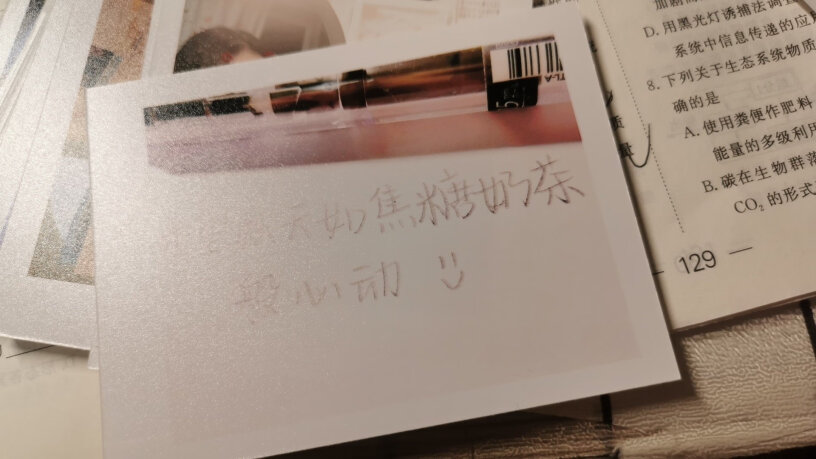 天如焦糖奶茶
般心动
D. 用黑光灯诱捕法调查
系统中信息传递的应
8. 下列关于生态系统物质
确的是
A. 使用粪便作肥料
能量的多级利用
B. 碳在生物群落
CO₂ 的形式
— 129 —